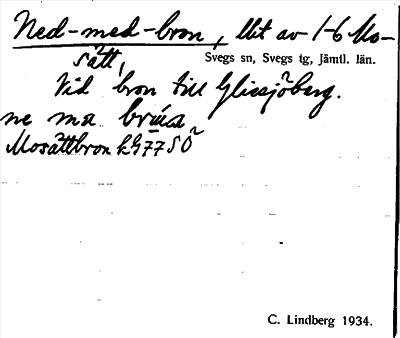 Ned-med-bron, lbit av 1-6 Mo-
sätt,
Svegs sn, Svegs tg, Jämtl. län.
Vid bron till Glissjöberg.
ne ma brúa
Mosättbron kG77SÖ
C. Lindberg 1934.